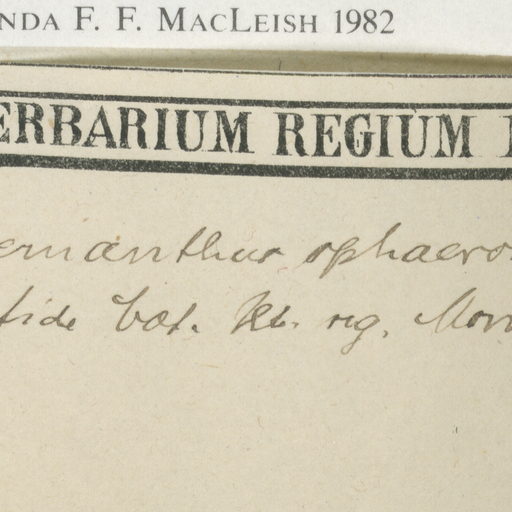 NDA F. F. MACLEISH 1982
ERBARIUM REGIUM
emanthus sphaero
fide Cat. Hb. reg. Mon